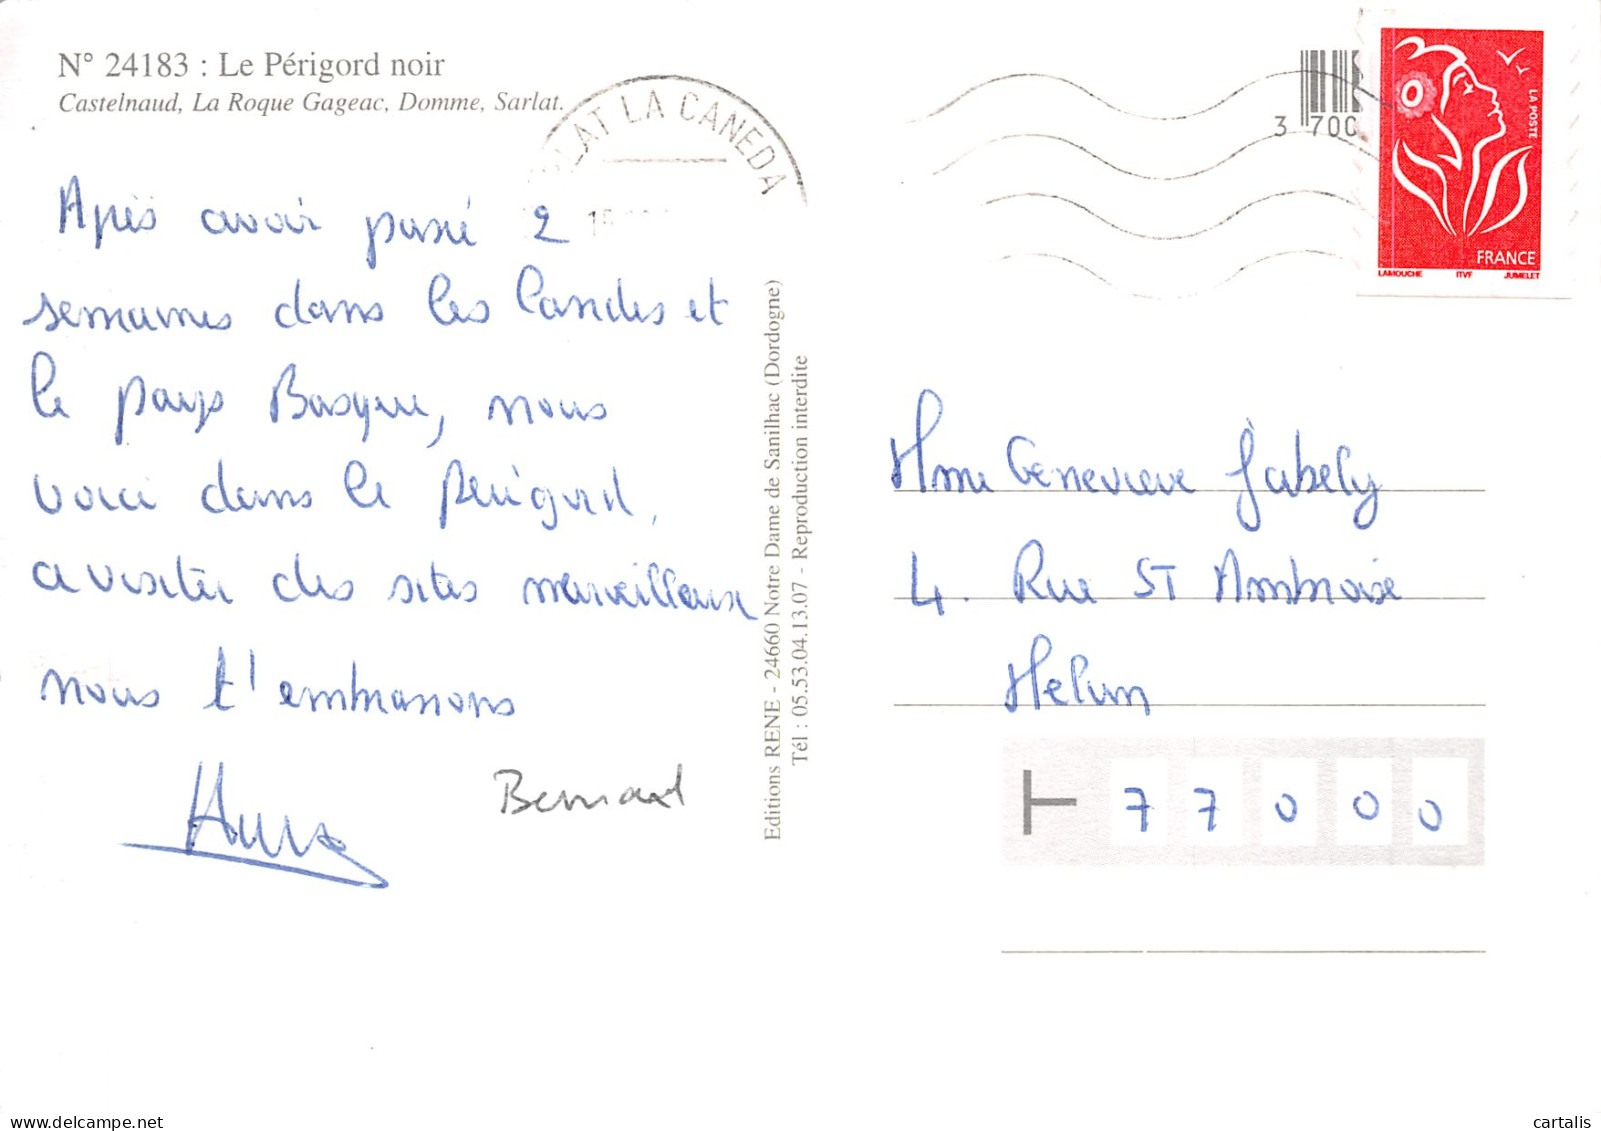 N° 24183 : Le Périgord noir
Castelnaud, La Roque Gageac, Domme, Sarlat.
LAT LA CANEDA
3 700
LA POSTE
FRANCE
LAMOUCHE ITVF JUMELET
Après avoir passé 2
semaines dans les Landes et
le pays Basque, nous
voici dans le Périgord,
a visiter des sites merveilleux
nous t'embrassons
Bernard
Editions RENE - 24660 Notre Dame de Sanilhac (Dordogne)
Tél : 05.53.04.13.07 - Reproduction interdite
Mme Genevieve Jabely
4. Rue ST Ambroise
Melun
77000
cartalis
delcampe.net